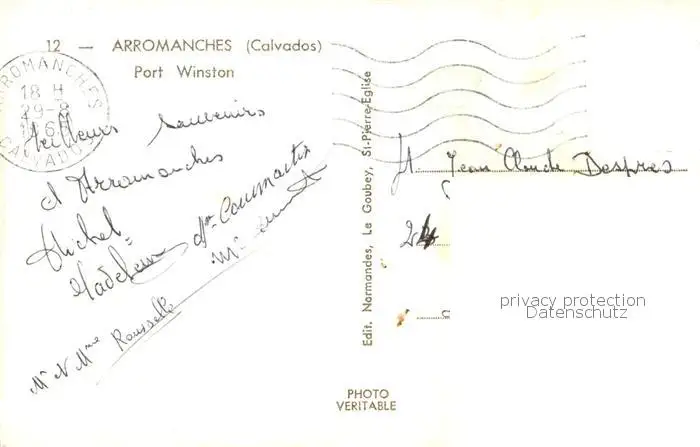 12 — ARROMANCHES (Calvados)
Port Winston
ARROMANCHES
18 H
29-8
CALVADOS
Meilleurs souvenirs
d'Arromanches
Michel
Madeleine
Mr N Mme Rousselle
Edit. Normandes, Le Goubey, St-Pierre-Eglise
PHOTO
VERITABLE
Jean Claude Despres
24
privacy protection
Datenschutz